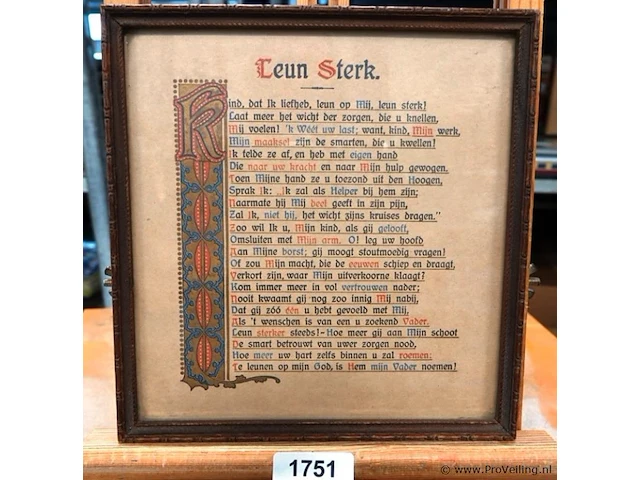 Leun Sterk.
Kind, dat Ik liefheb, leun op Mij, leun sterk!
Laat meer het wicht der zorgen, die u knellen,
Mij voelen! 'k Wéét uw last; want, kind, Mijn werk,
Mijn maaksel zijn de smarten, die u kwellen!
Ik telde ze af, en heb met eigen hand
Die naar uw kracht en naar Mijn hulp gewogen.
Toen Mijne hand ze u toezond uit den Hoogen,
Sprak Ik: „Ik zal als Helper bij hem zijn;
Naarmate hij Mij deel geeft in zijn pijn,
Zal Ik, niet hij, het wicht zijns kruises dragen."
Zoo wil Ik u, Mijn kind, als gij gelooft,
Omsluiten met Mijn arm. O! leg uw hoofd
Aan Mijne borst; gij moogt stoutmoedig vragen!
Of zou Mijn macht, die de eeuwen schiep en draagt,
Verkort zijn, waar Mijn uitverkoorne klaagt?
Kom immer meer in vol vertrouwen nader;
Nooit kwaamt gij nog zoo innig Mij nabij,
Dat gij zóó één u hebt gevoeld met Mij,
Als 't wenschen is van een u zoekend Vader.
Leun sterker steeds!- Hoe meer gij aan Mijn schoot
De smart betrouwt van uwer zorgen nood,
Hoe meer uw hart zelfs binnen u zal roemen:
Te leunen op mijn God, is Hem mijn Vader noemen!
1751
© www.ProVeiling.nl